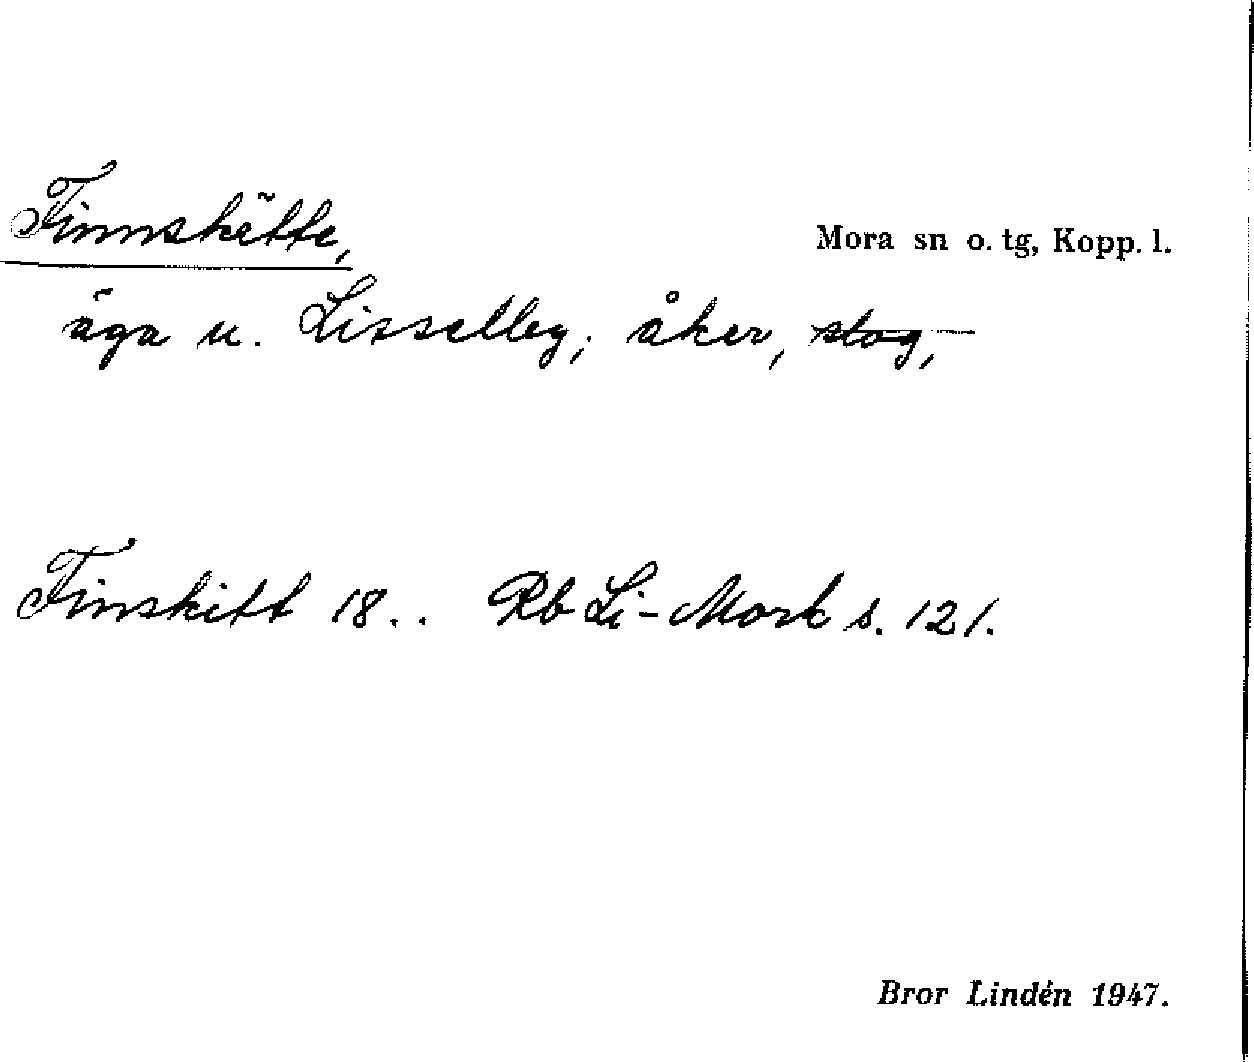 Finnskëtte,
Mora sn o. tg, Kopp. l.
äga u. Lisselby; åker, slog,
Finskitt 18.. Rb Li-Mork s. 121.
Bror Lindén 1947.